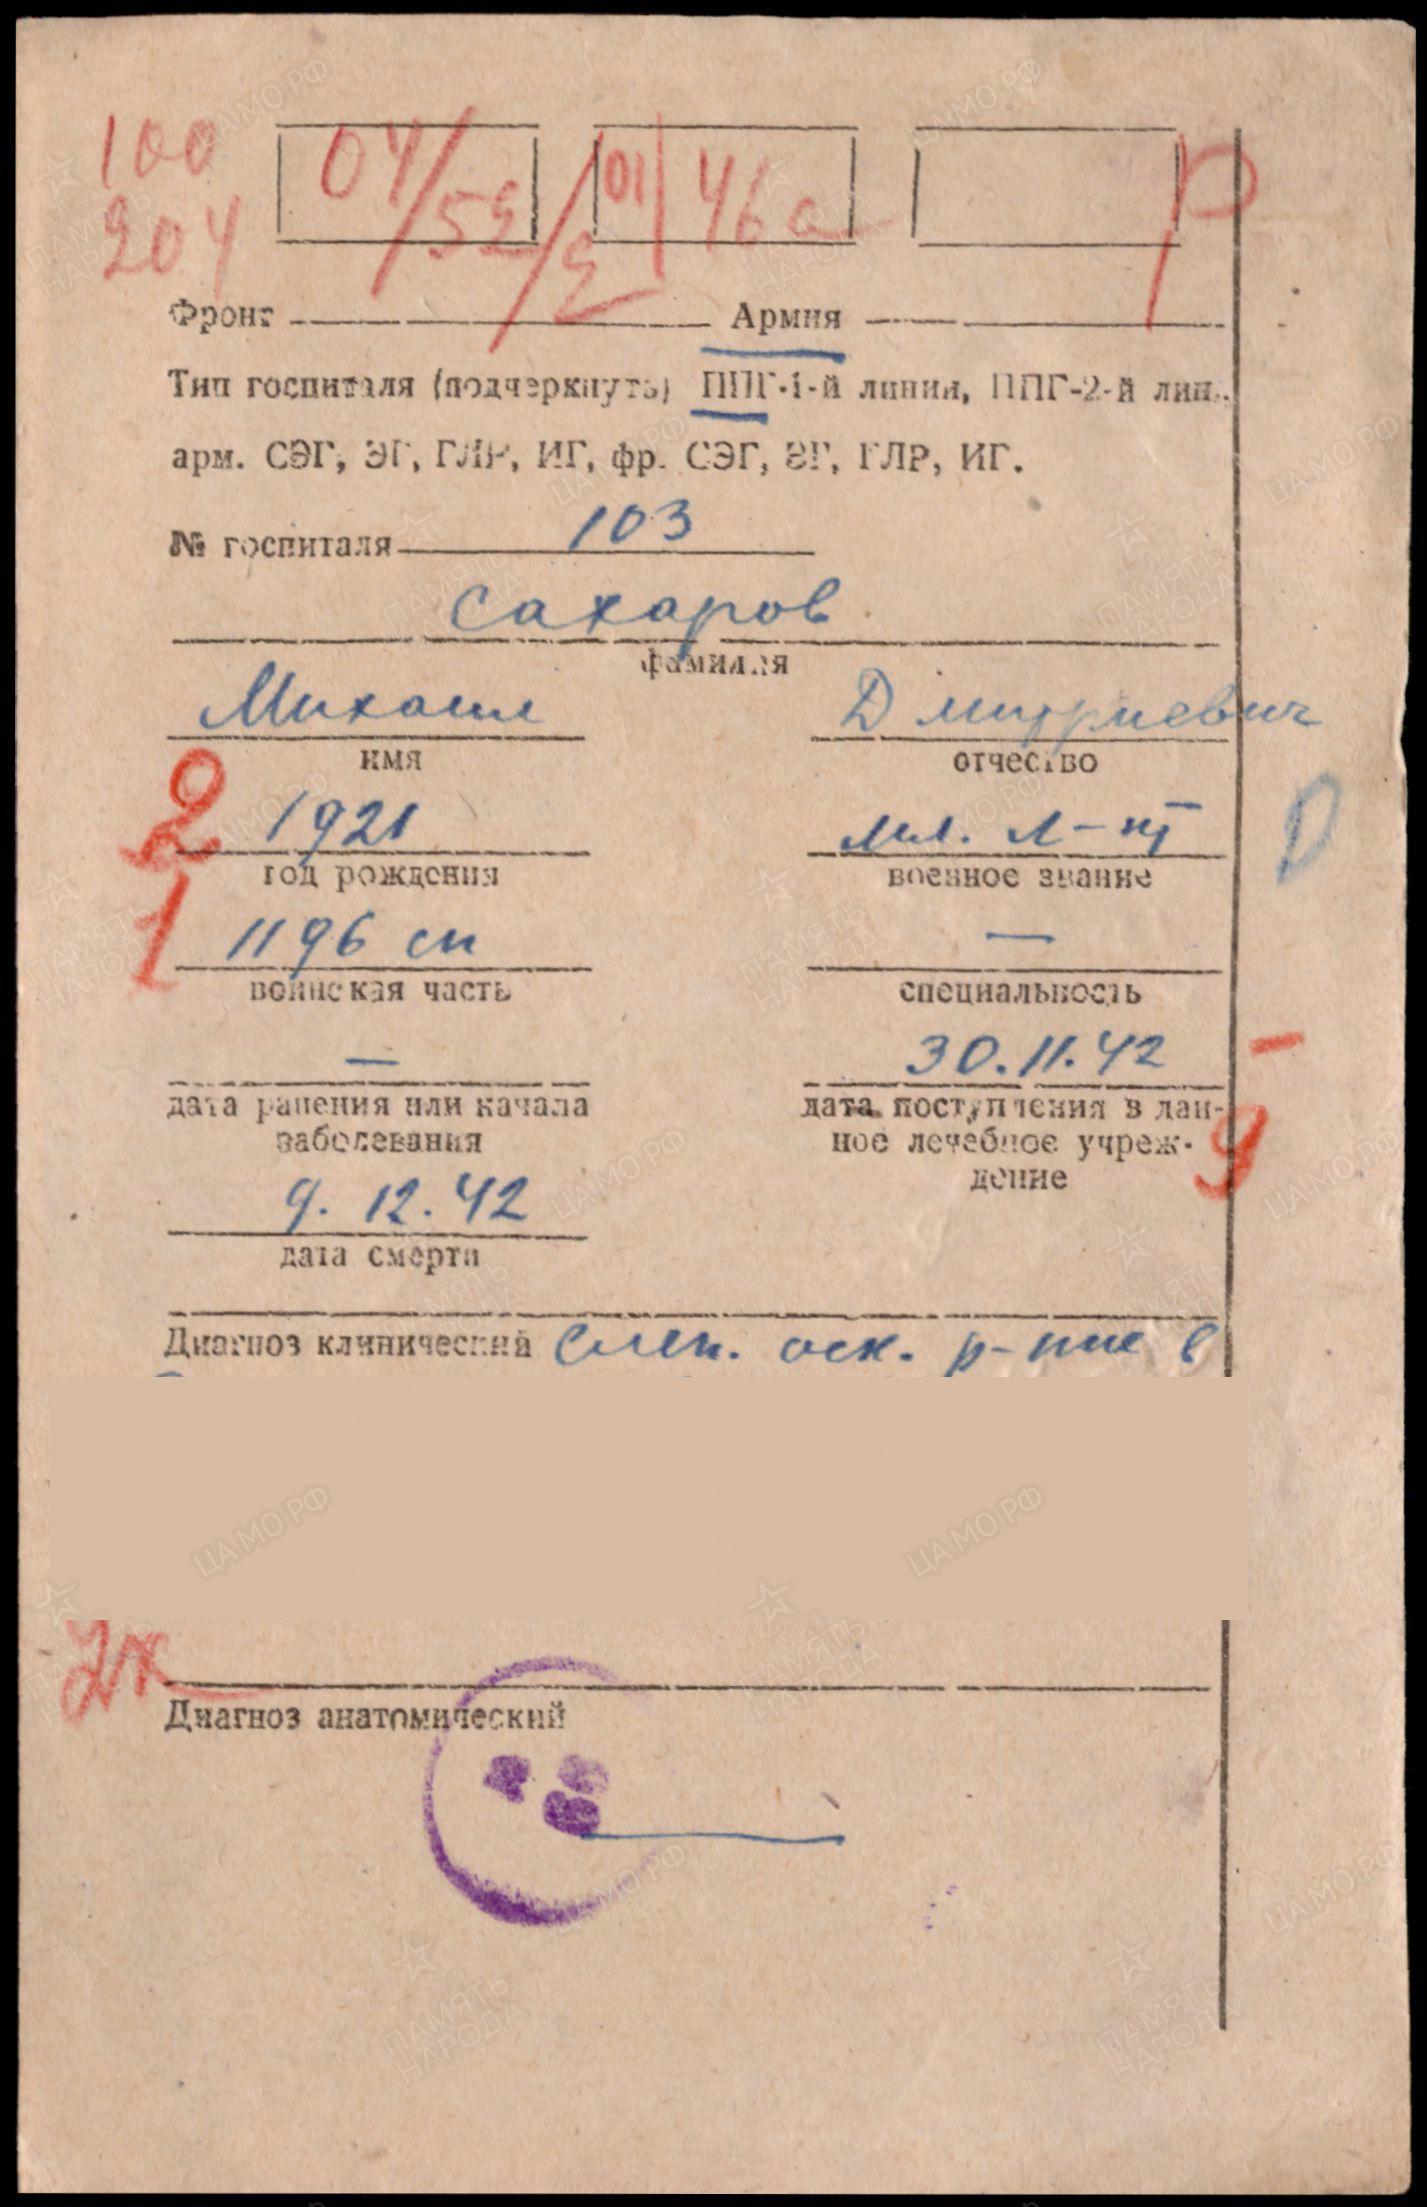 100 04/52 01 46а Р
204 2
Фронт Армия
Тип госпиталя (подчеркнуть) ППГ-1-й линии, ППГ-2-й лин.,
арм. СЭГ, ЭГ, ГЛР, ИГ, фр. СЭГ, ЭГ, ГЛР, ИГ.
№ госпиталя 103
Сахаров
фамилия
Михаил Дмитриевич
имя отчество
2 1921 мл. л-нт
год рождения военное звание
1 1196 сп —
воинская часть специальность
— 30.11.42
дата ранения или начала дата поступления в дан-
заболевания ное лечебное учреж-
дение
9
9.12.42
дата смерти
Диагноз клинический Слеп. оск. р-ние в
2х
Диагноз анатомический
ЦАМО РФ
ПАМЯТЬ
НАРОДА